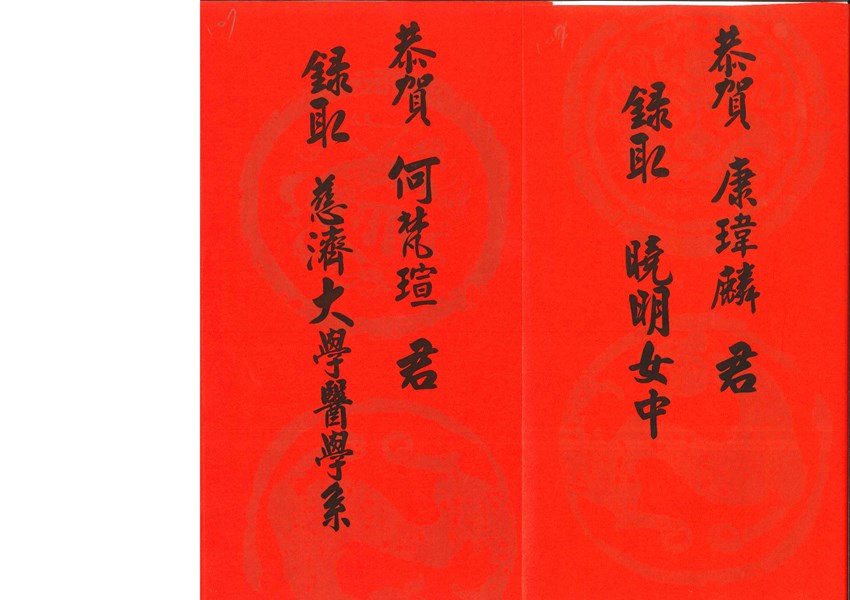 恭賀 康瑋麟 君
録取 曉明女中
恭賀 何梵瑄 君
録取 慈濟大學醫學系